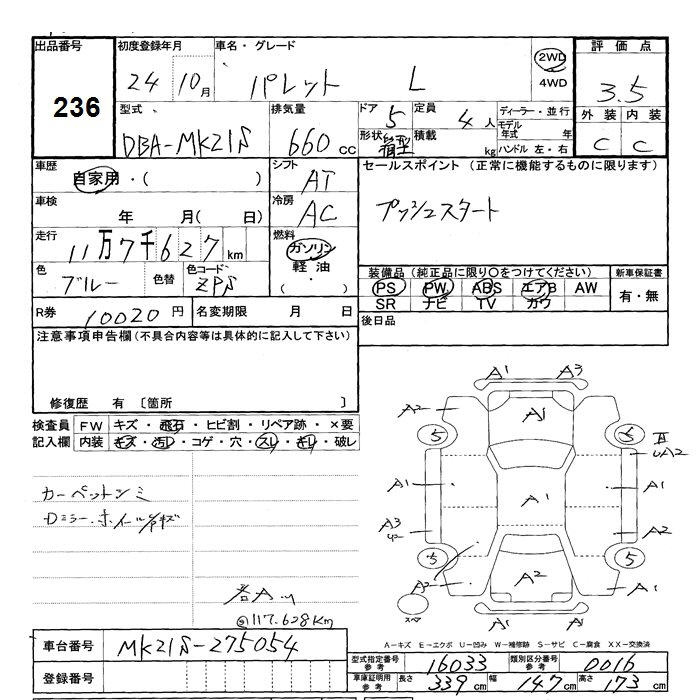 出品番号
236
初度登録年月
24 10月
車名・グレード
パレット L
2WD
4WD
評価点
3.5
外装 内装
C C
型式
DBA-MK21S
排気量
660 cc
ドア 5
定員 4人
形状 箱型
積載 kg
ディーラー・並行
モデル年式 年
ハンドル 左・右
車歴
自家用・( )
シフト
AT
セールスポイント (正常に機能するものに限ります)
プッシュスタート
車検
年 月( 日)
冷房
AC
走行
11万7千627km
燃料
ガソリン
軽油
( ・ )
色
ブルー
色替
色コード
ZPS
装備品 (純正品に限り〇をつけてください)
PS PW ABS エアB AW
SR ナビ TV カワ
新車保証書
有・無
R券 10020円
名変期限 月 日
後日品
注意事項申告欄 (不具合内容等は具体的に記入して下さい)
修復歴 有 〔箇所 〕
検査員記入欄
FW キズ・飛石・ヒビ割・リペア跡・×要
内装 キズ・汚レ・コゲ・穴・スレ・キレ・破レ
カーペットシミ
Dミラー・ホイールキズ
@117.628Km
A1 A3
A2 A1
5 5
UA2
A1 A1 A1
A3 A2
5 5
A2 A2 A1
スペア
A1 A1
A-キズ E-エクボ U-凹み W-補修跡 S-サビ C-腐食 XX-交換済
車台番号
MK21S-275054
登録番号
型式指定番号 参考
16033
類別区分番号 参考
0016
車庫証明用 参考
長さ 339cm 幅 147cm 高さ 173cm